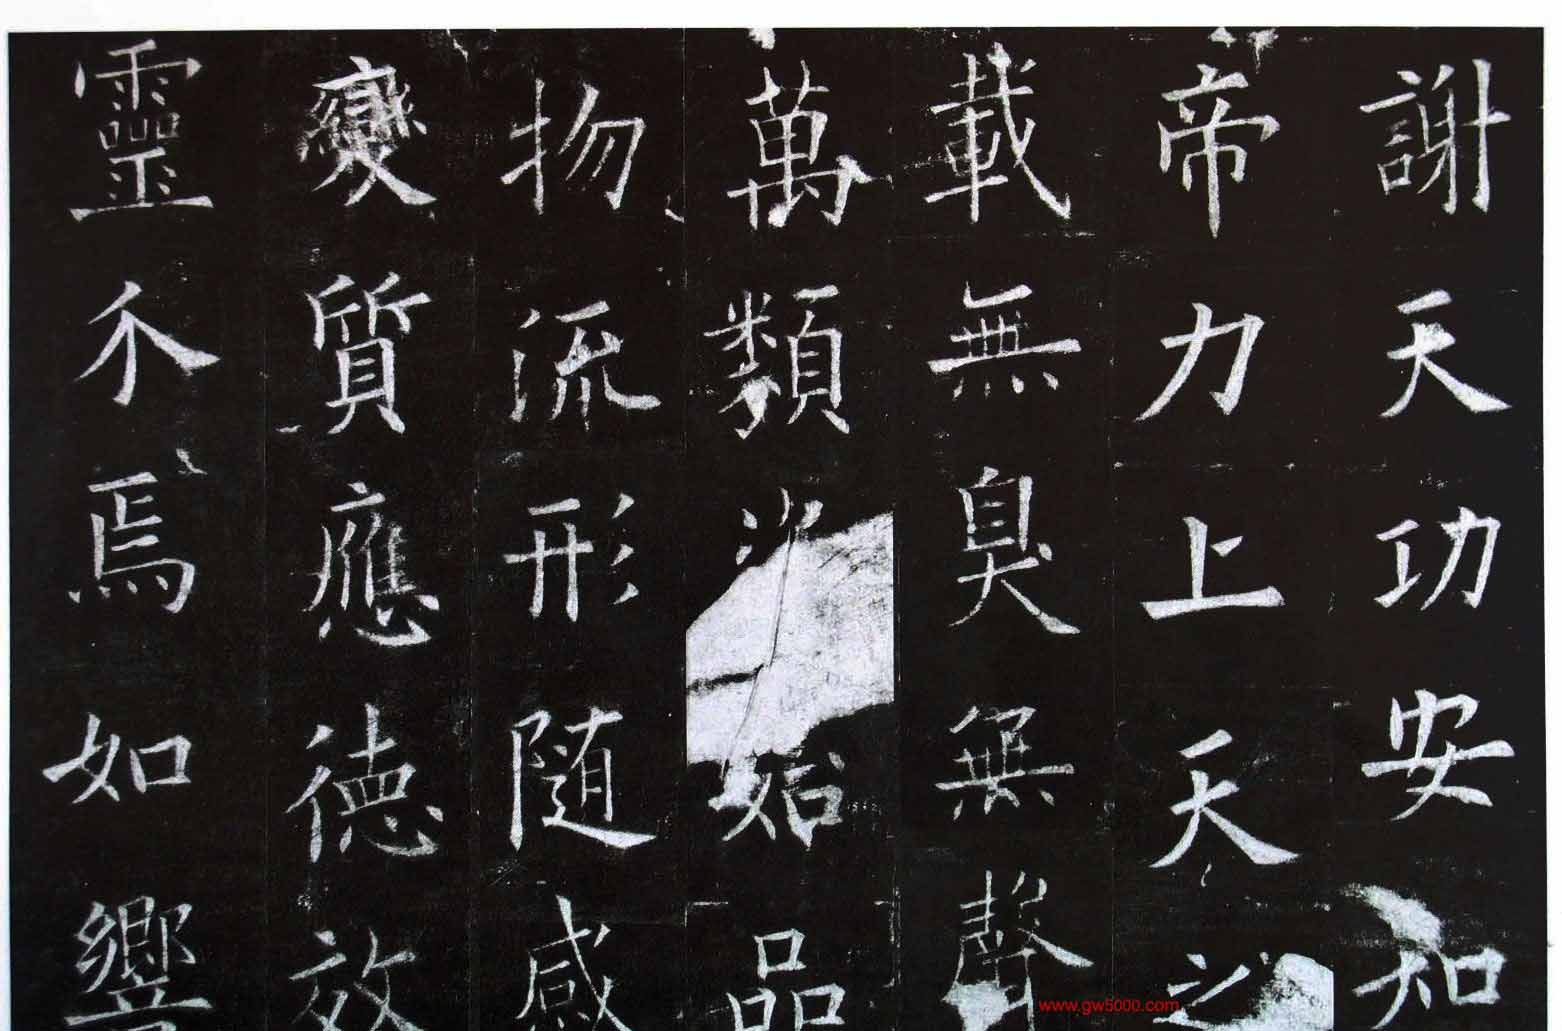 謝天功安知
帝力上天之
載無臭無聲
萬類資始品
物流形随感
變質應德效
靈介焉如響
www.gw5000.com